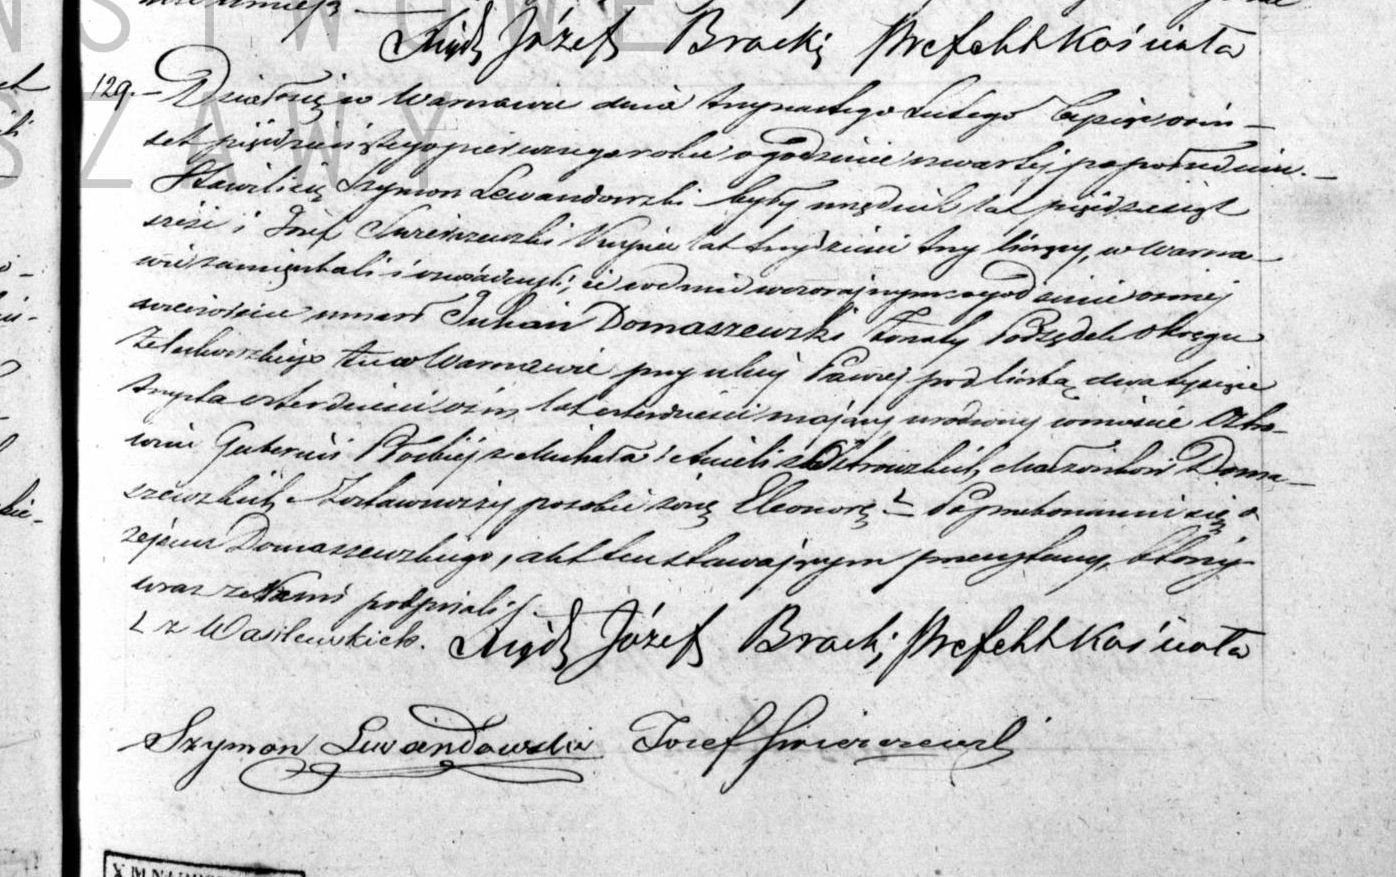 Xiądz Józef Bracki Prefekt Kościoła
129. Działo się w Warszawie dnia trzynastego Lutego tysiąc ośm-
set pięćdziesiątego pierwszego roku o godzinie czwartej po południu.
Stawili się Szymon Lewandowski były urzędnik lat pięćdziesiąt
sześć i Józef Świerczewski lat trzydzieści trzy liczący, w Warsza-
wie zamieszkali i oświadczyli; iż w dniu wczorajszym o godzinie ósmej
wieczorem umarł Julian Domaszewski żonaty Podsędek Okręgu
Żelechowskiego tu w Warszawie przy ulicy Pawiej pod liczbą dwa tysiące
trzysta czterdzieści ośm lat czterdzieści mający urodzony w mieście Ostro-
wiu Gubernii Płockiej z Michała i Anieli z Ostrowskich Małżonków Doma-
szewskich Zostawiwszy po sobie żonę Eleonorę L Po przekonaniu się o
zejściu Domaszewskiego, akt ten stawającym przeczytany, który
wraz z Nami podpisali.
L z Wasilewskich. Xiądz Józef Bracki Prefekt Kościoła
Szymon Lewandowski Józef Świerczewski